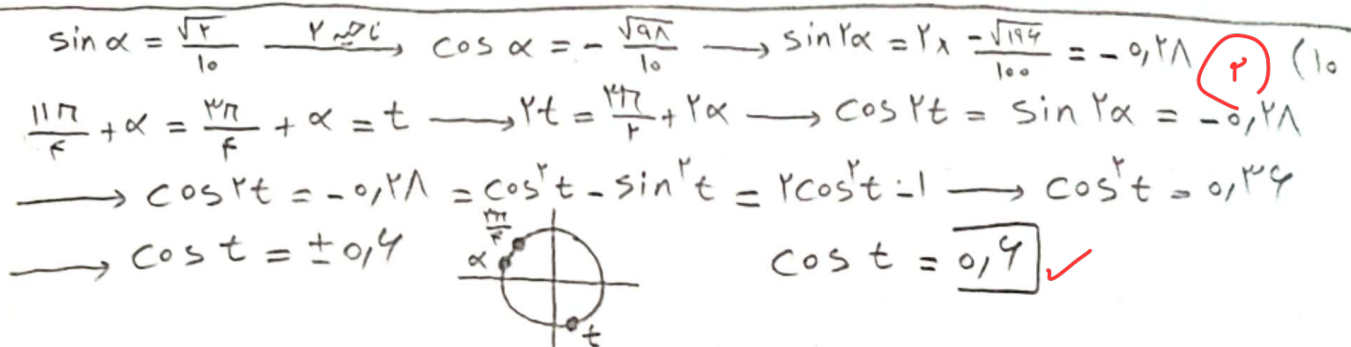 (۱۰ sin α = √۲/۱۰ ناحیه ۲ → cos α = - √۹۸/۱۰ → sin ۲α = ۲ × - √۱۹۶/۱۰۰ = - ۰,۲۸ ۲
۱۱π/۴ + α = ۳π/۴ + α = t → ۲t = ۳π/۲ + ۲α → cos ۲t = sin ۲α = - ۰,۲۸
→ cos ۲t = - ۰,۲۸ = cos²t - sin²t = ۲cos²t - ۱ → cos²t = ۰,۳۶
→ cos t = ± ۰,۶ ۳π/۴ α t cos t = ۰,۶ ✓